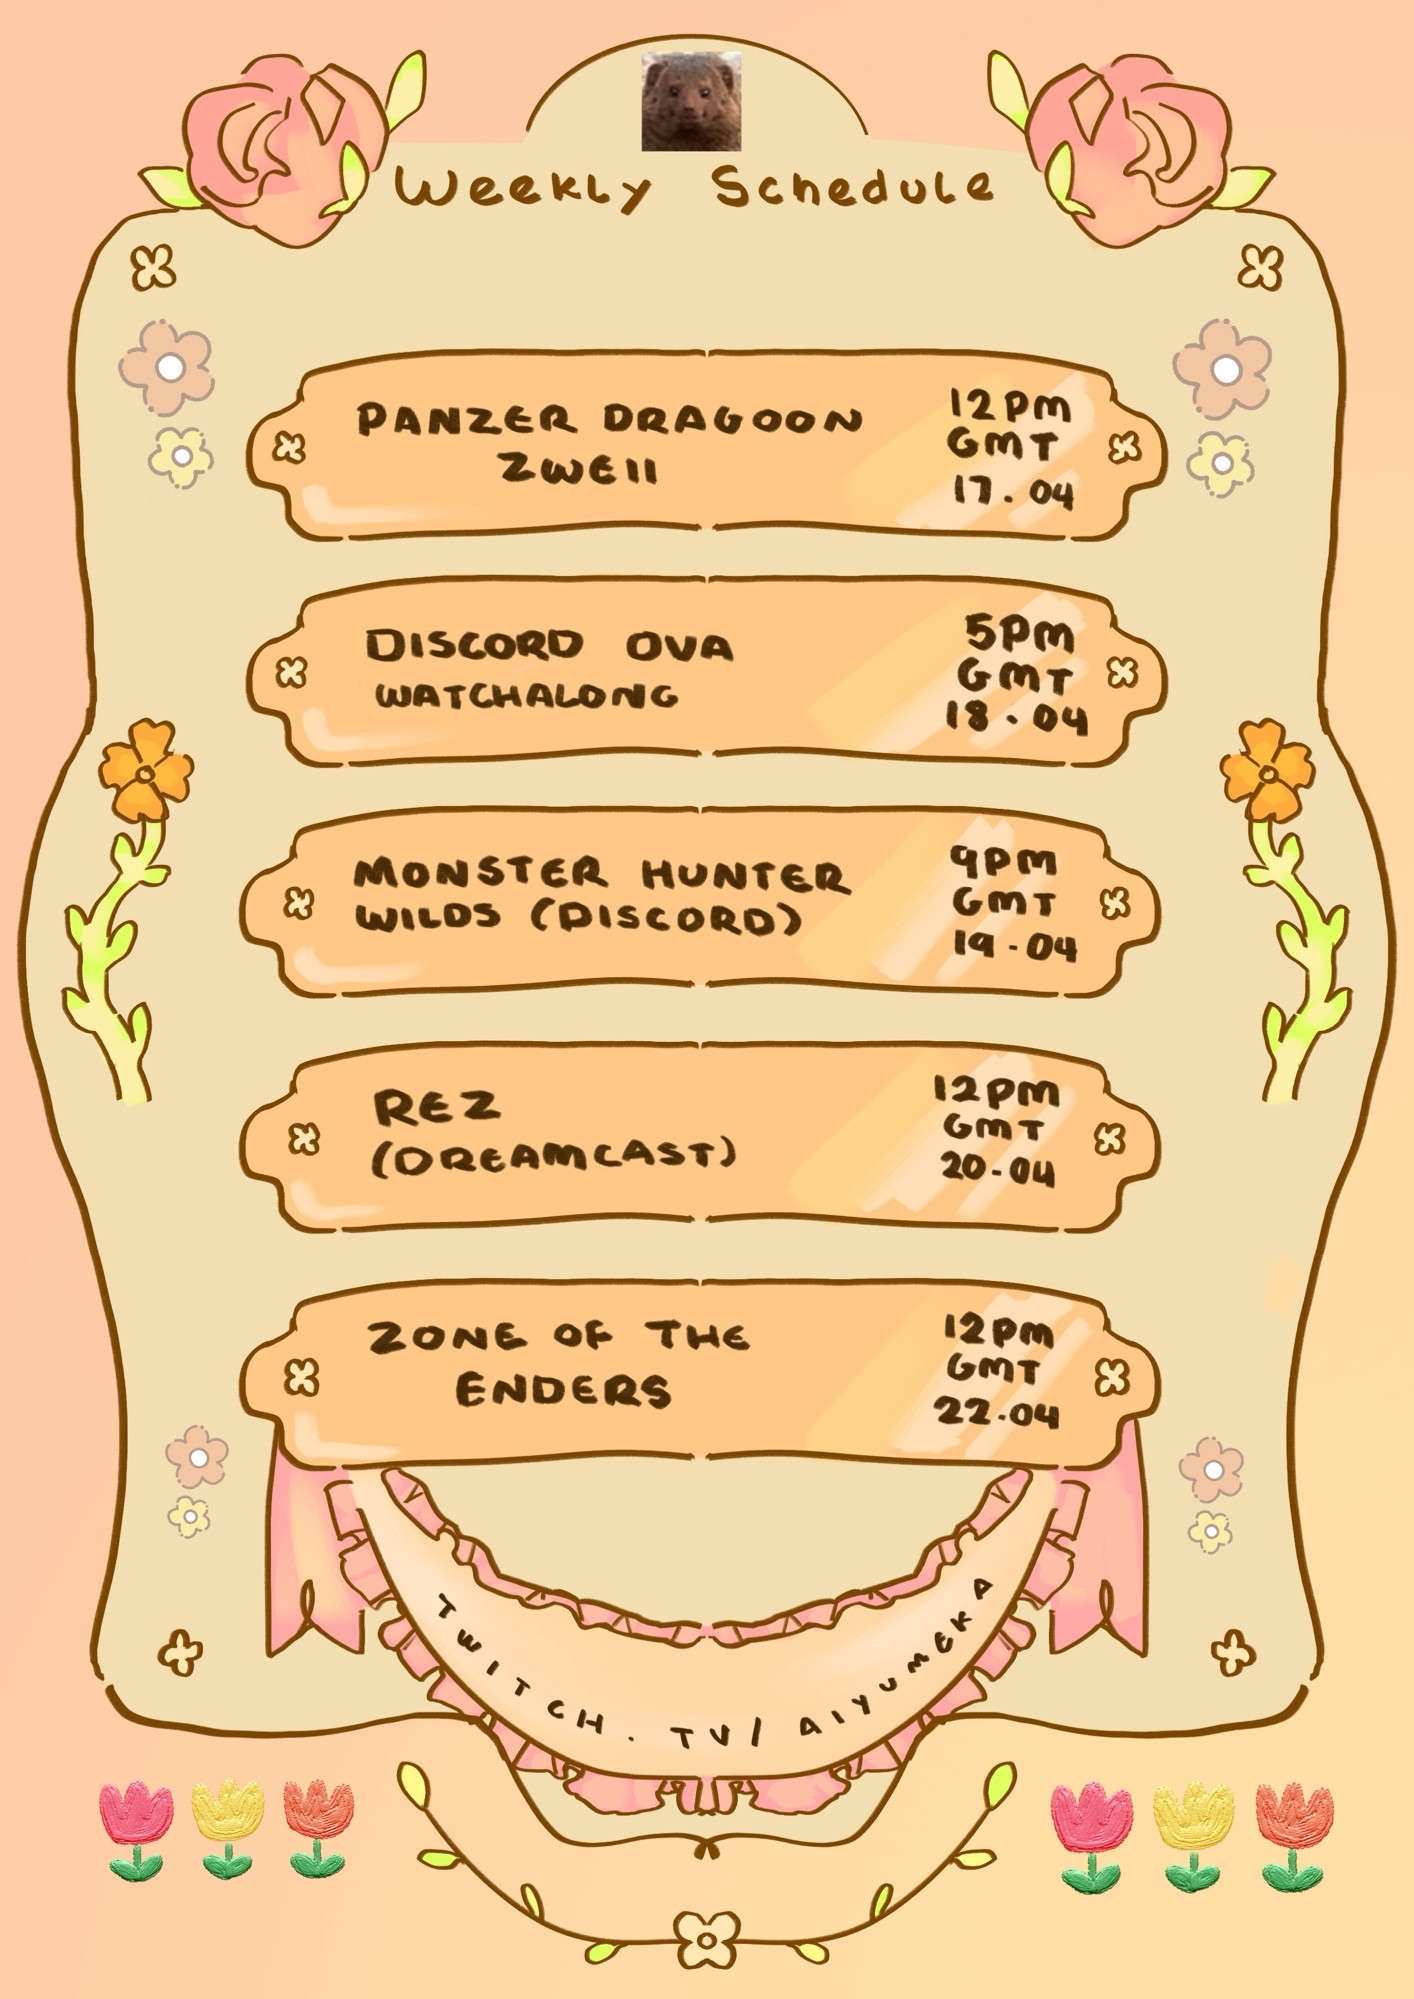 Weekly Schedule
PANZER DRAGOON
ZWEII
12PM
GMT
17.04
DISCORD OVA
WATCHALONG
5PM
GMT
18.04
MONSTER HUNTER
WILDS (DISCORD)
9PM
GMT
19.04
REZ
(DREAMCAST)
12PM
GMT
20-04
ZONE OF THE
ENDERS
12PM
GMT
22.04
TWITCH.TV/AIYUMEKA